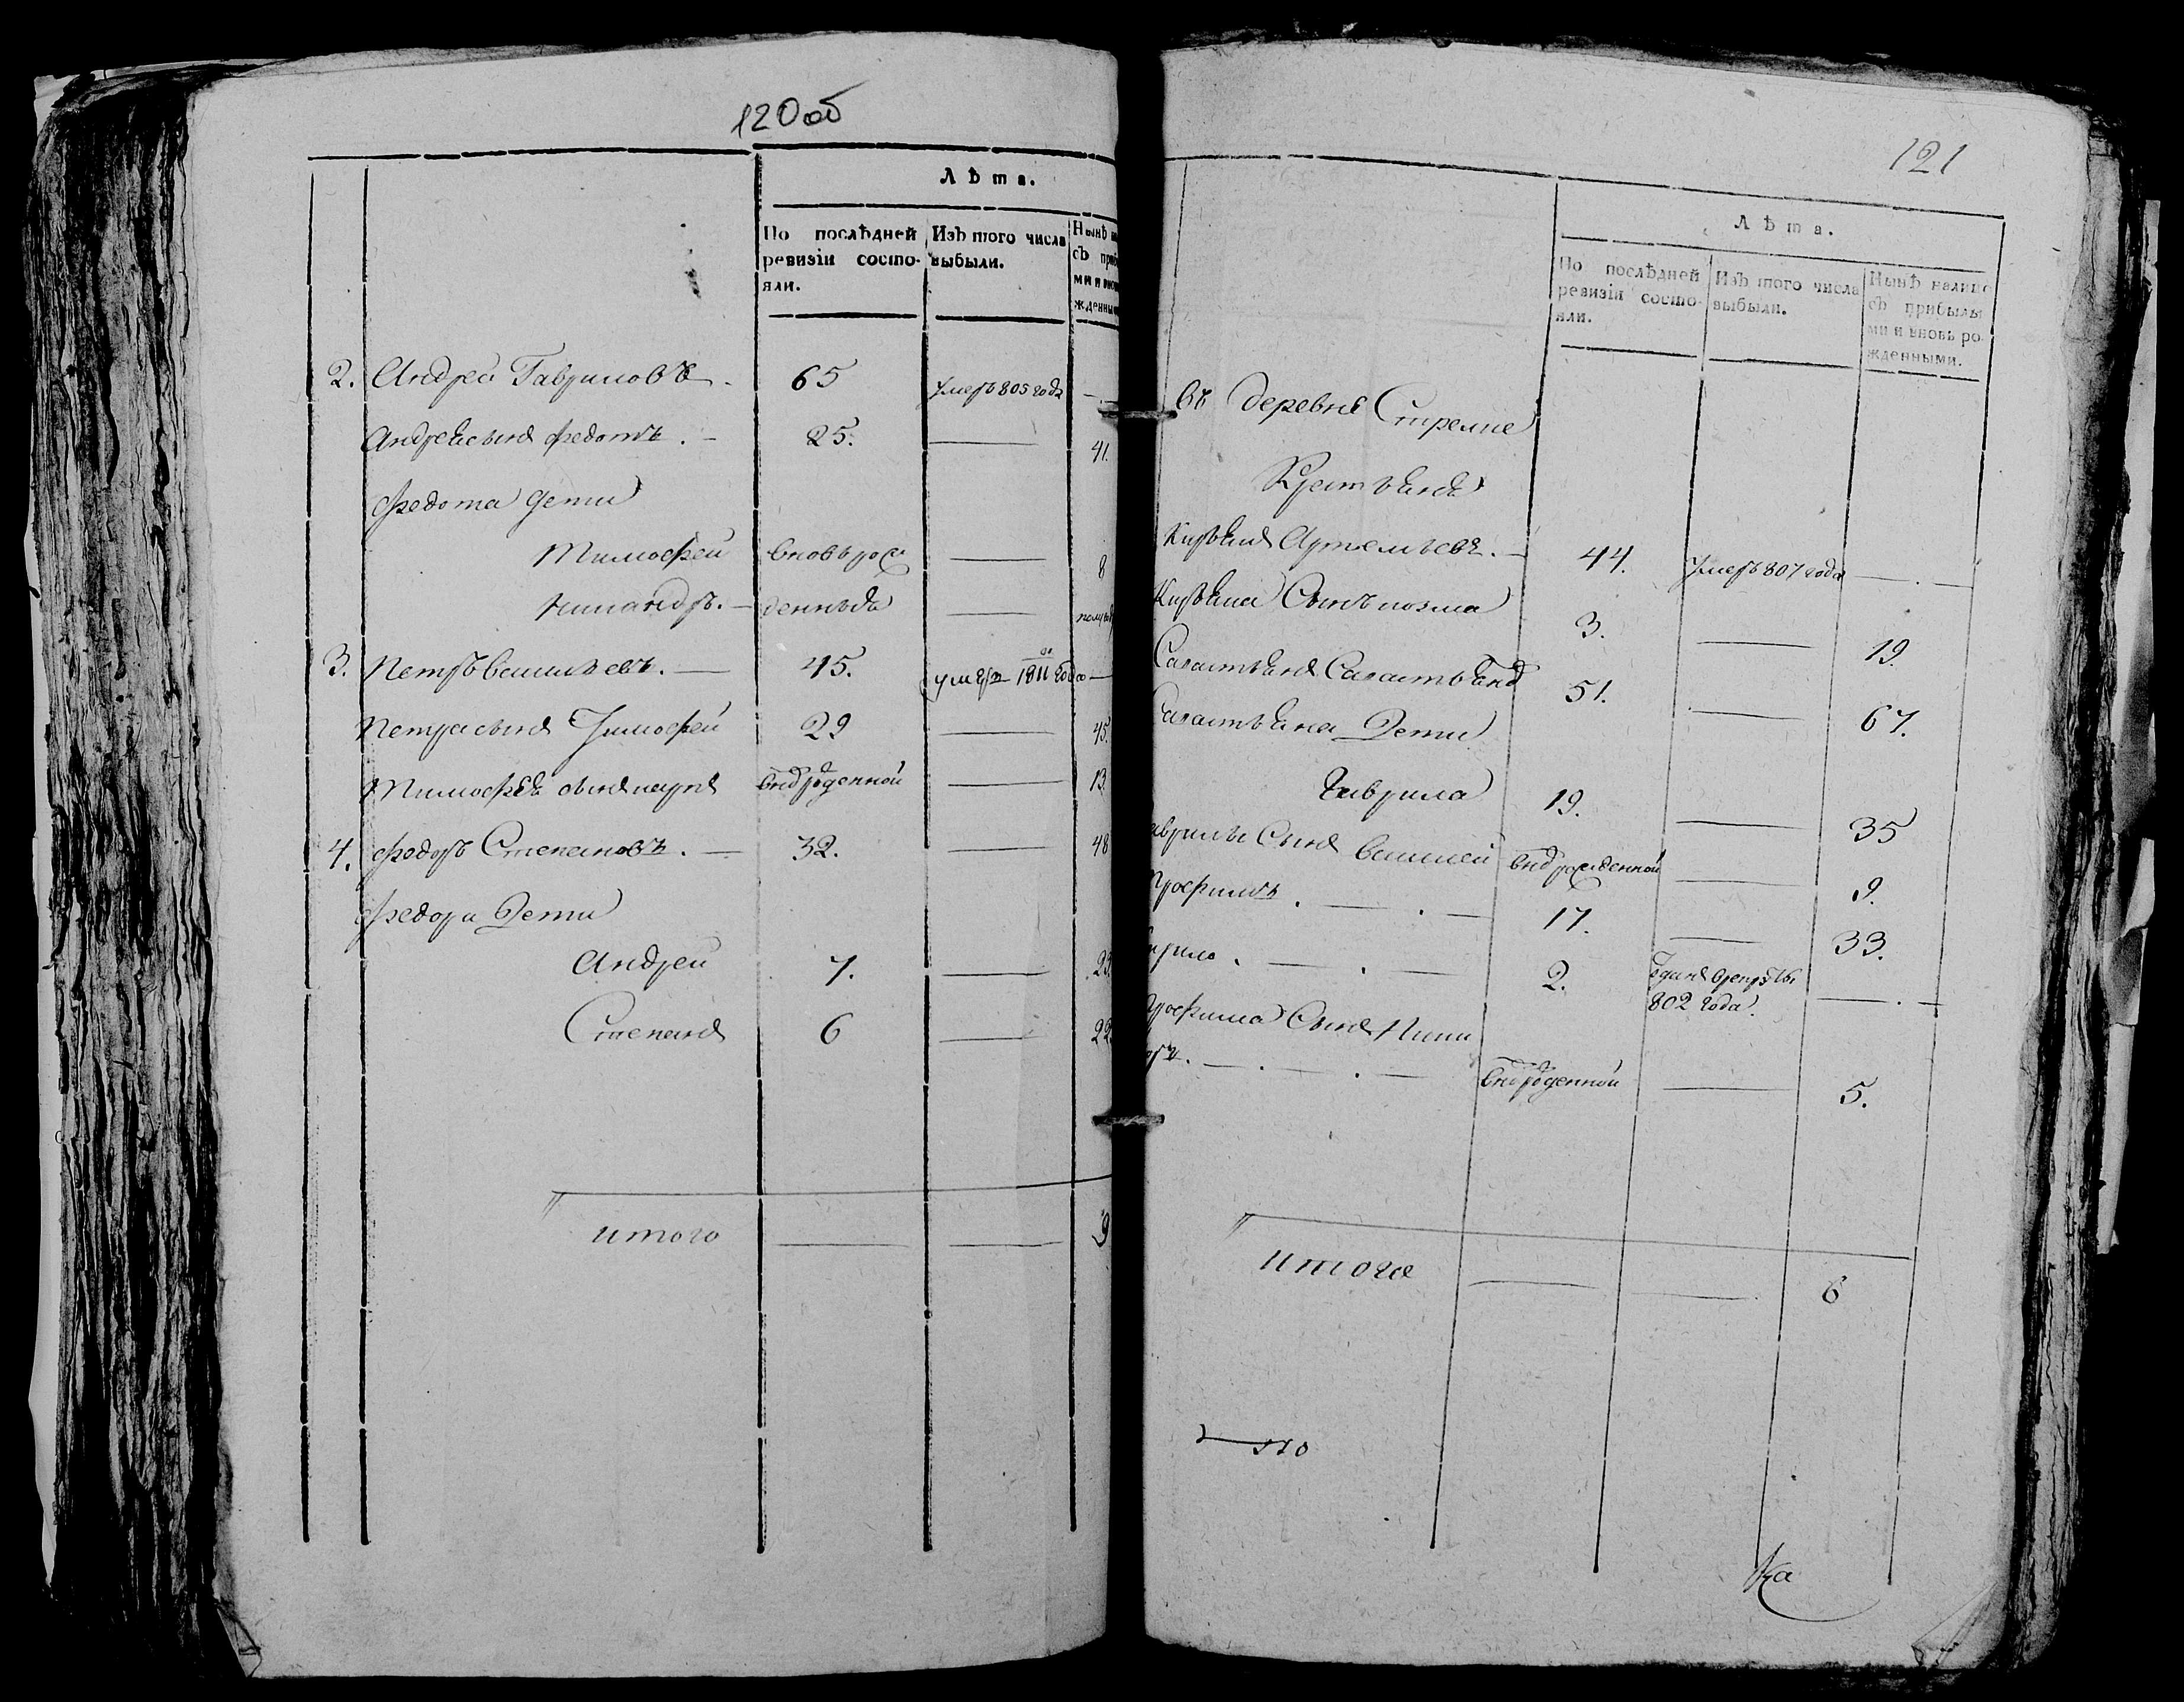 120об
Лѣта.
По послѣдней ревизіи состояли.
Изъ того числа выбыли.
Нынѣ
съ
ми и
жденны
2. Андрей Гавриловъ. 65 умеръ 805 года —
Андрея сынъ Федотъ. — 25. — 41.
Федота дети
Тимофей вновь рож — 8
Никандръ. — денныя — полу
3. Петръ Васильевъ. — 45. умеръ 1811 года —
Петра сынъ Тимофей 29 — 45.
Тимофея сынъ вновь рожденной — 13.
4. Федоръ Степановъ. — 32. — 48
Федора Дети
Андрей 7. — 23
Степанъ 6 — 22
итого — — 9
121
Лѣта.
По послѣдней ревизіи состояли.
Изъ того числа выбыли.
Нынѣ налицо
съ прибылы
ми и вновь ро
жденными.
Въ деревне
Крестьянъ
Артемьевъ. — 44. умеръ 807 года —
Сынъ 3. — 19.
51. — 67.
Дети
Гаврила 19. — 35
аврилы Сынъ Василей вновь рожденной — 9.
рофимъ. — . — 17. — 33.
ирило. — . — 2. отданъ в рекруты
802 года. — . —
рофима Сынъ Ники
оръ. — . — . — вновь рожденной — 5.
итого — — 6
Ка